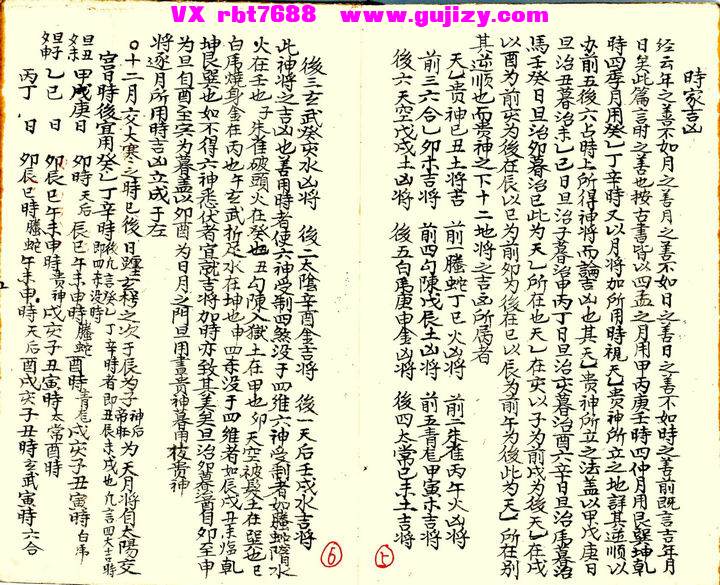 VX rbt7688 www.gujizy.com
時家吉凶
经云年之善不如月之善月之善不如日之善日之善不如時之善前既言吉年月
日矣此篇言時之善也按古書皆以四孟之月用甲丙庚壬時四仲月用艮巽坤乾
時四季月用癸乙丁辛時又以月將加所用時視天乙貴神所立之地詳其逆順以
办前五後六占時上所得神將而論吉凶也其天乙貴神所立之法盖以甲戊庚日
旦治丑暮治未乙己日旦治子暮治申丙丁日旦治亥暮治酉六辛日旦治馬暮治
馬壬癸日旦治卯暮治巳此为天乙所在也天乙在亥以子为前戌为後天乙在戌
以酉为前亥为後在辰以巳为前卯为後在巳以辰为前午为後此为天乙所在别
其逆順也而贵神之下十二地將之吉凶所属者
天乙贵神己丑土將吉 前一螣蛇丁巳火凶將 前二朱雀丙午火凶將
前三六合乙卯木吉將 前四勾陳戊辰土凶將 前五青龙甲寅木吉將
後六天空戊戌土凶將 後五白虎庚申金凶將 後四太常己未土吉將
5
後三玄武癸亥水凶將 後二太陰辛酉金吉將 後一天后壬子水吉將
此神將之吉凶也善用時者使六神受制四煞没于四维六神受制者如螣蛇墮水
火在壬也子朱雀破頭火在癸也丑勾陳入獄土在甲也卯天空被髮土在巽也巳
白虎燒身金在丙也午玄武折足水在坤也申四煞没于四维者如辰戌丑未临乾
坤艮巽也如不得六神悉伏者宜就吉將加時亦致其美矣旦治卯暮治酉自卯至申
为旦自酉至寅为暮盖以卯酉为日月之門旦用晝贵神暮用夜贵神
將逐月所用時吉凶立成于左
〇十二月交大寒之時已後日躔玄枵之次于辰为子神后为天月將自太陽交
宫日時後宜用癸乙丁辛時
甲戊庚日 卯時天后 辰巳午未申時螣蛇 酉時青龙 戌亥子丑寅時白虎
乙己日 卯辰巳午未申時贵神 戌亥子丑寅時太常酉時
丙丁日 卯辰巳時螣蛇午未申時天后酉戌亥子丑時玄武寅時六合
6